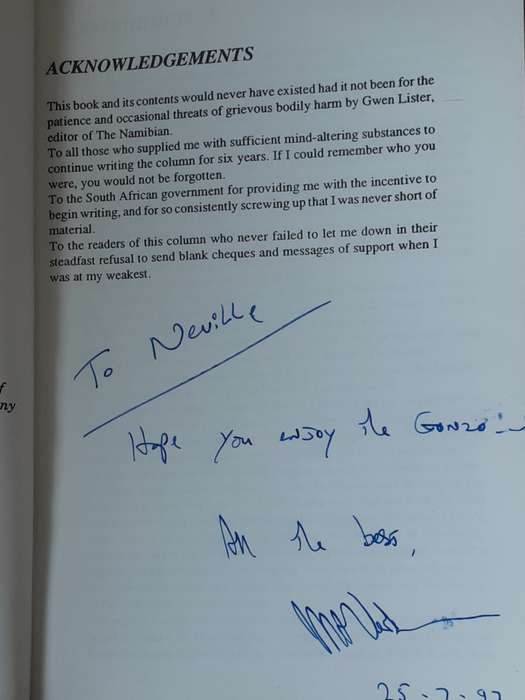 ACKNOWLEDGEMENTS
This book and its contents would never have existed had it not been for the
patience and occasional threats of grievous bodily harm by Gwen Lister,
editor of The Namibian.
To all those who supplied me with sufficient mind-altering substances to
continue writing the column for six years. If I could remember who you
were, you would not be forgotten.
To the South African government for providing me with the incentive to
begin writing, and for so consistently screwing up that I was never short of
material.
To the readers of this column who never failed to let me down in their
steadfast refusal to send blank cheques and messages of support when I
was at my weakest.
To Neville
f
ny
Hope you enjoy the GONZO!
All the best,
25-7-92